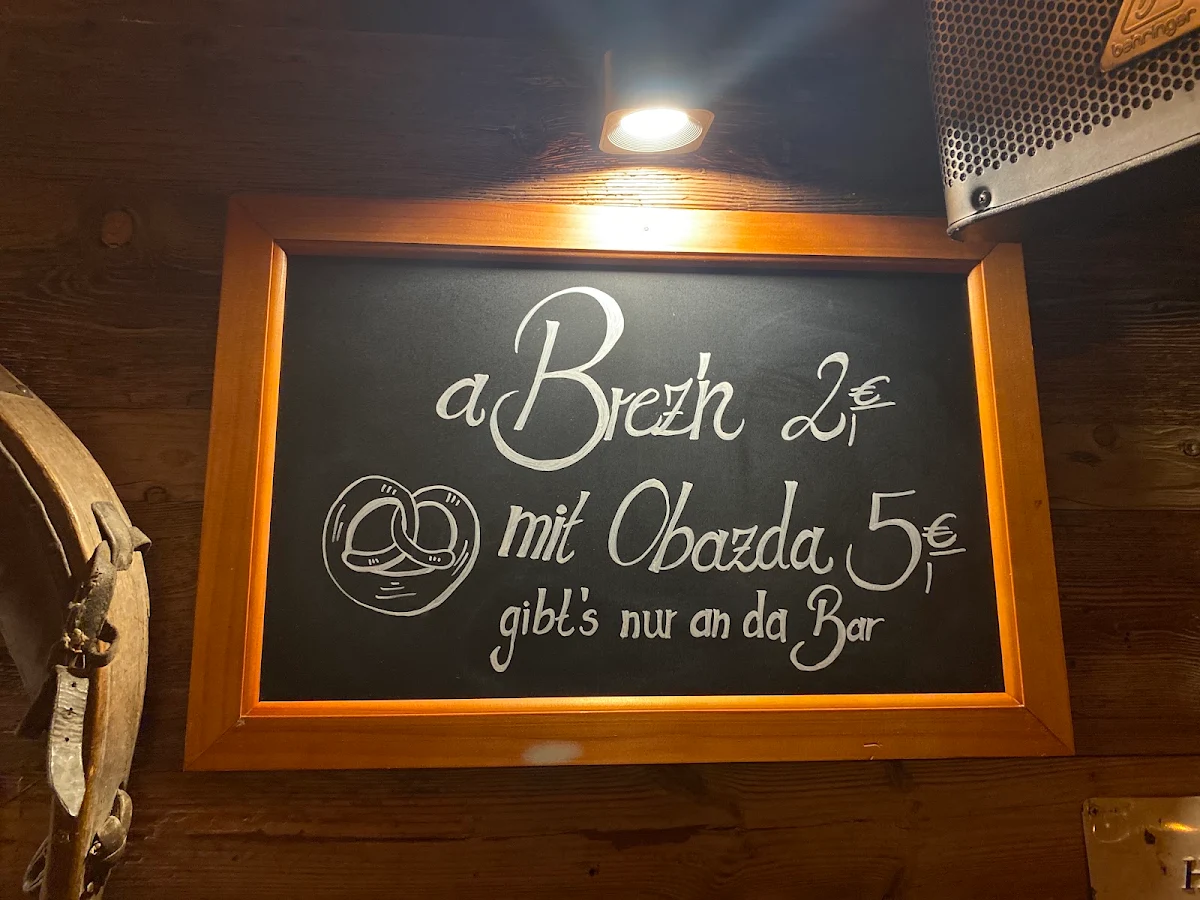 behringer
a Brez'n 2,€
mit Obazda 5,€
gibt's nur an da Bar
H